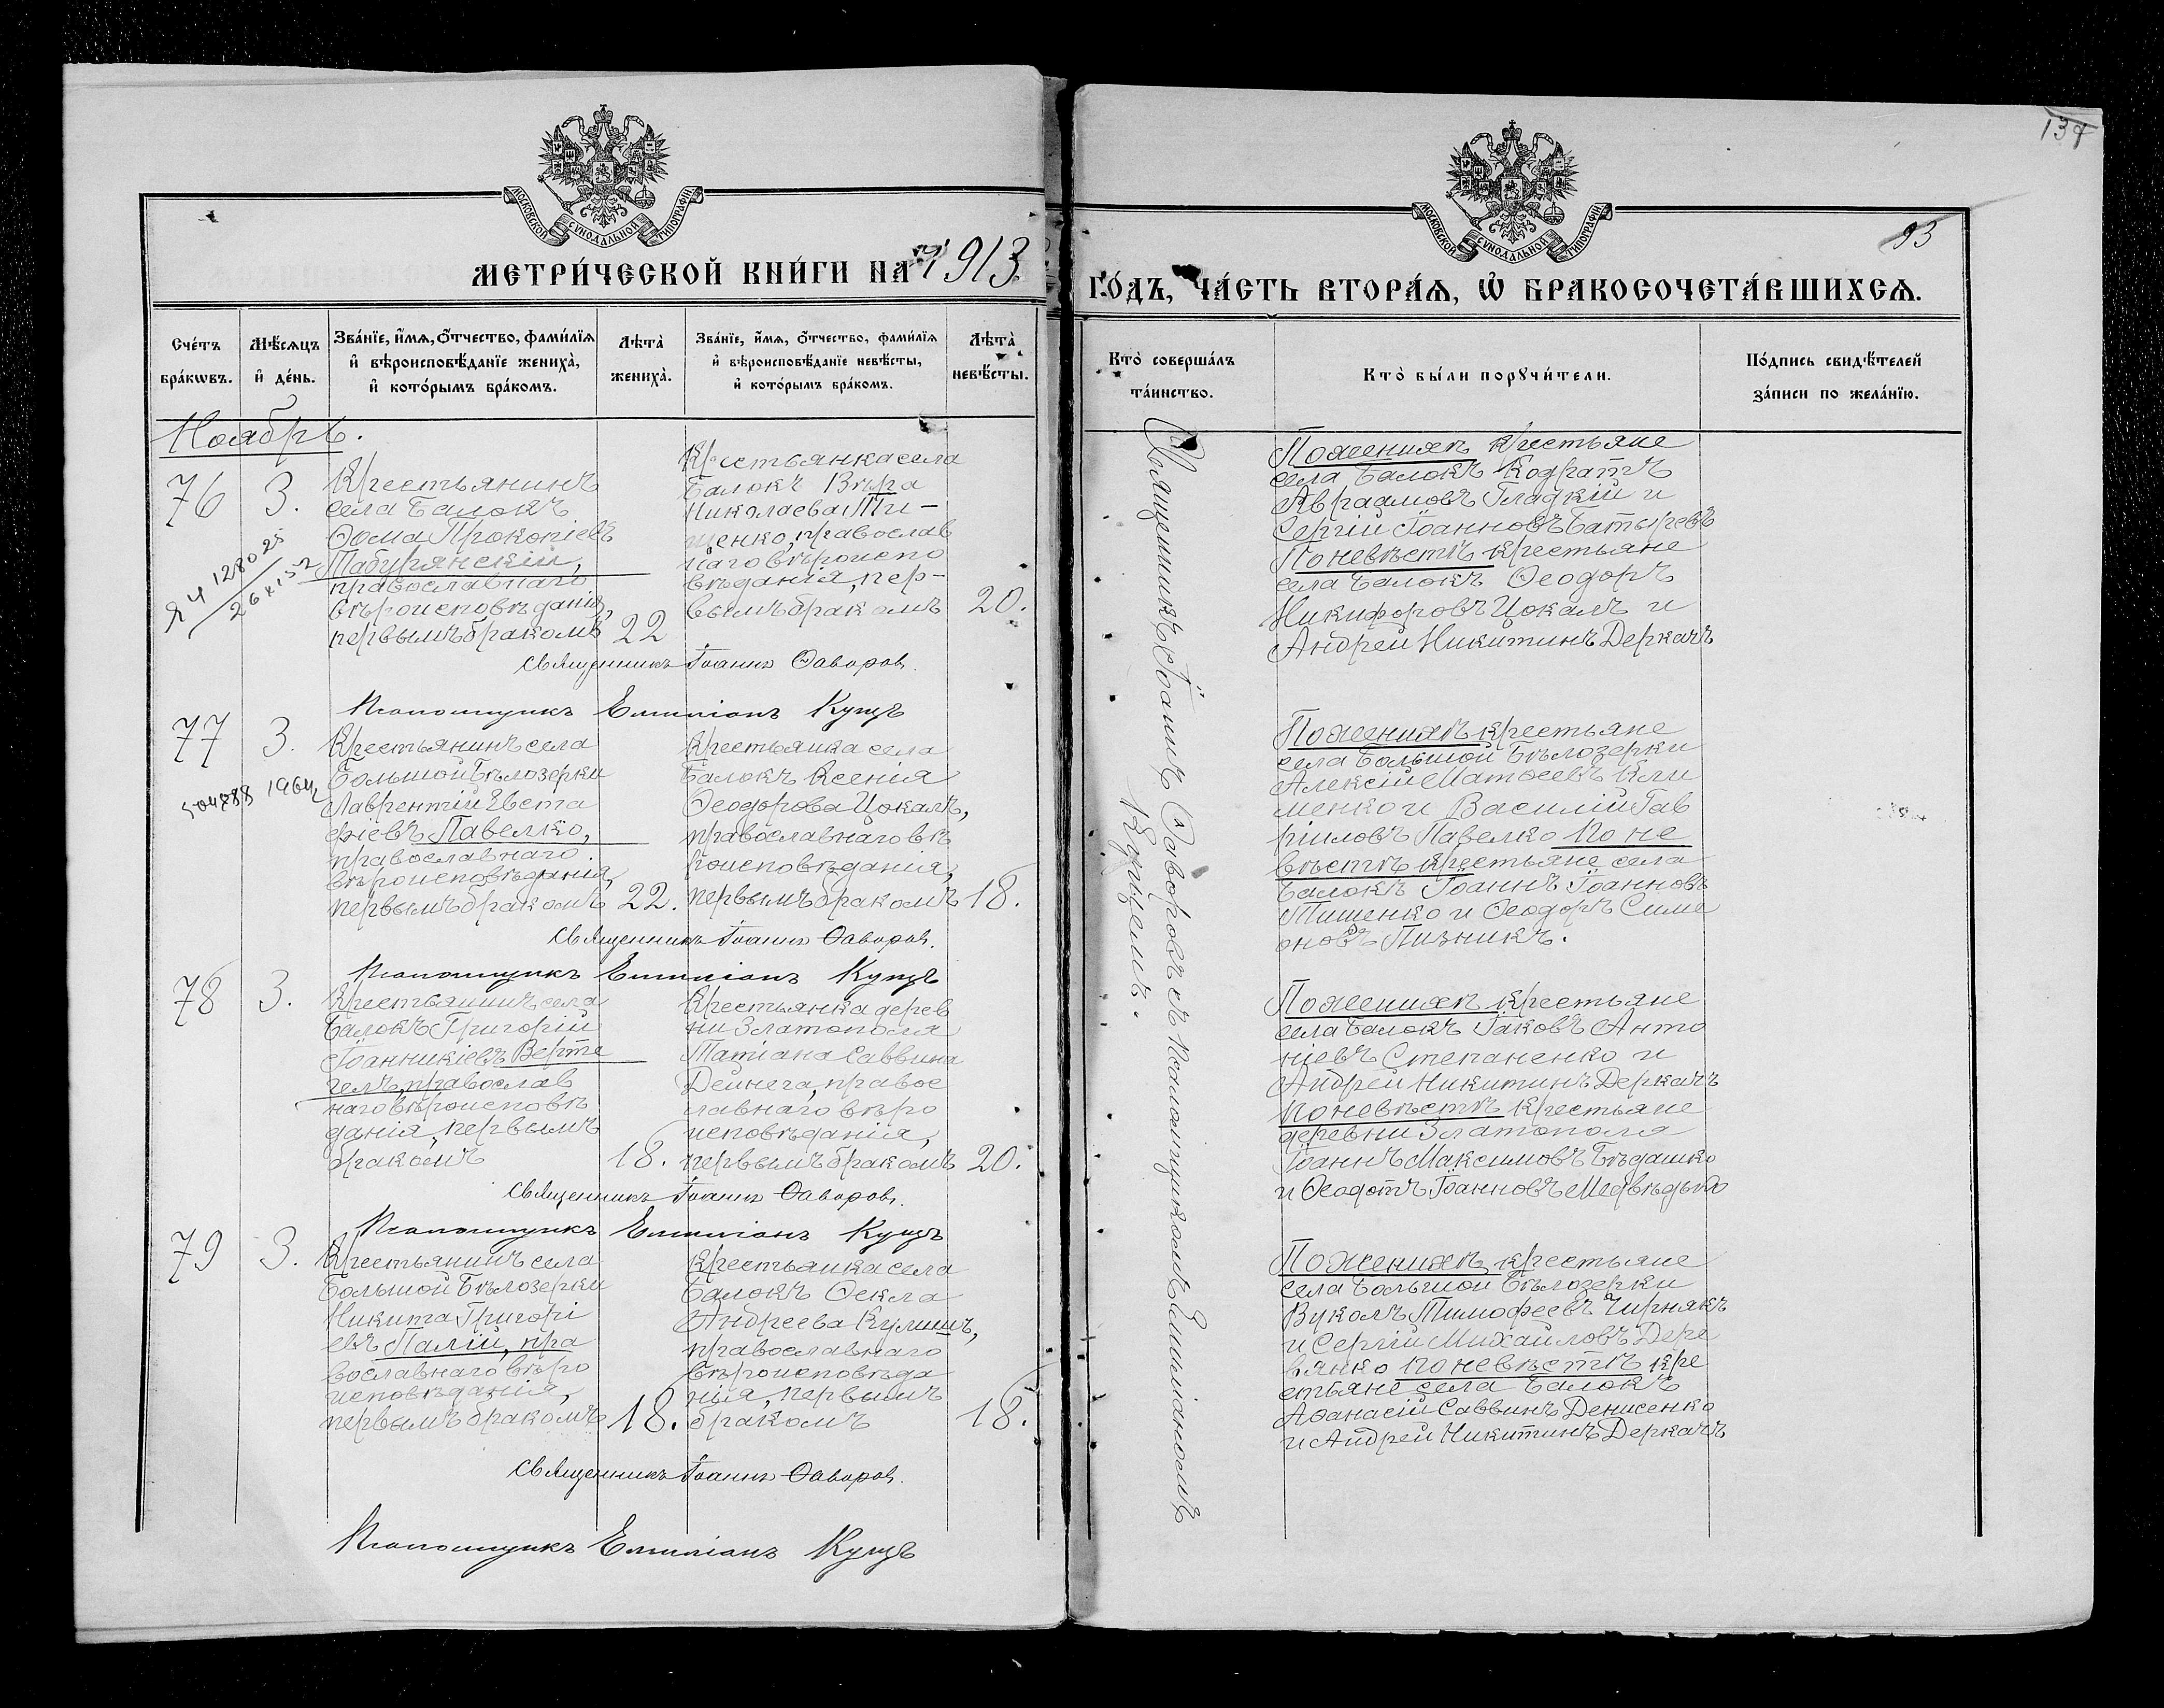 134
93
МОСКОВСКОЙ СѴНОДАЛЬНОЙ ТИПОГРАФІИ
МОСКОВСКОЙ СѴНОДАЛЬНОЙ ТИПОГРАФІИ
МЕТРИ́ЧЕСКОЙ КНИ́ГИ НА 1913
ГО́ДЪ, ЧА́СТЬ ВТОРА́Ѧ, Ѡ҆ БРАКОСОЧЕТА́ВШИХСѦ.
Сче́тъ бра́кѡвъ.
Мѣ́сяцъ и҆ де́нь.
Зва́нїе, и҆́мѧ, ѻ҆́тчество, фами́лїѧ
и҆ вѣроисповѣ́данїе жениха̀,
и҆ кото́рымъ бра́комъ.
Лѣта̀ жениха̀.
Зва́нїе, и҆́мѧ, ѻ҆́тчество, фами́лїѧ
и҆ вѣроисповѣ́данїе невѣ́сты,
и҆ кото́рымъ бра́комъ.
Лѣта̀ невѣ́сты.
Кто̀ соверша́лъ
та́инство.
Кто̀ бы́ли порꙋчи́тели.
По́дпись свидѣ́телей
за́писи по жела́нїю.
Ноябрь.
76
3.
Крестьянинъ
села Балокъ
Ѳома Прокопіевъ
Табурянскій,
православнаго
вѣроисповѣданія,
первымъ бракомъ
22
Крестьянка села
Балокъ Вѣра
Николаева Ти-
щенко, православ
наго вѣроиспо
вѣданія, пер-
вымъ бракомъ
20.
Священникъ Іоаннъ Ѳаворовъ.
Псаломщикъ Емиліанъ Купцъ
77
3.
504788 1964
Крестьянинъ села
Большой Бѣлозерки
Лаврентій Евста
фіевъ Павелко,
православнаго
вѣроисповѣданія,
первымъ бракомъ
22.
Крестьянка села
Балокъ Ксенія
Ѳеодорова Цокалъ,
православнаго вѣ
роисповѣданія,
первымъ бракомъ
18.
Священникъ Іоаннъ Ѳаворовъ.
Псаломщикъ Емиліанъ Купцъ
78
3.
Крестьянинъ села
Балокъ Григорій
Іоанникіевъ Верте
гелъ, православ
наго вѣроисповѣ
данія, первымъ
бракомъ
18.
Крестьянка дерев
ни Златополя
Татіана Саввина
Дейнега, правос
лавнаго вѣро
исповѣданія,
первымъ бракомъ
20.
Священникъ Іоаннъ Ѳаворовъ.
Псаломщикъ Емиліанъ Купцъ
79
3.
Крестьянинъ села
Большой Бѣлозерки
Никита Григорі
евъ Палій, пра
вославнаго вѣро
исповѣданія,
первымъ бракомъ
18.
Крестьянка села
Балокъ Ѳекла
Андреева Кулишъ,
православнаго
вѣроисповѣда
нія, первымъ
бракомъ
18.
Священникъ Іоаннъ Ѳаворовъ.
Псаломщикъ Емиліанъ Купцъ
Священникъ Іоаннъ Ѳаворовъ съ псаломщикомъ Емиліаномъ
Купцемъ.
По женихѣ крестьяне
села Балокъ Кодратъ
Авраамовъ Гладкій и
Сергій Іоанновъ Батыревъ
По невѣстѣ крестьяне
села Балокъ Ѳеодоръ
Никифоровъ Цокалъ и
Андрей Никитинъ Деркачъ
По женихѣ крестьяне
села Большой Бѣлозерки
Алексій Матѳеевъ Кли
менко и Василій Гав
ріиловъ Павелко По не
вѣстѣ крестьяне села
Балокъ Іоаннъ Іоанновъ
Тищенко и Ѳеодоръ Симе
оновъ Пизникъ.
По женихѣ крестьяне
села Балокъ Іаковъ Анто
ніевъ Степаненко и
Андрей Никитинъ Деркачъ
По невѣстѣ крестьяне
деревни Златополя
Іоаннъ Максимовъ Бѣдашко
и Ѳеодотъ Іоанновъ Медвѣдько
По женихѣ крестьяне
села Большой Бѣлозерки
Вуколъ Тимофеевъ Чирнякъ
и Сергій Михайловъ Дере
вянко по невѣстѣ кре
стьяне села Балокъ
Аѳанасій Саввинъ Денисенко
и Андрей Никитинъ Деркачъ